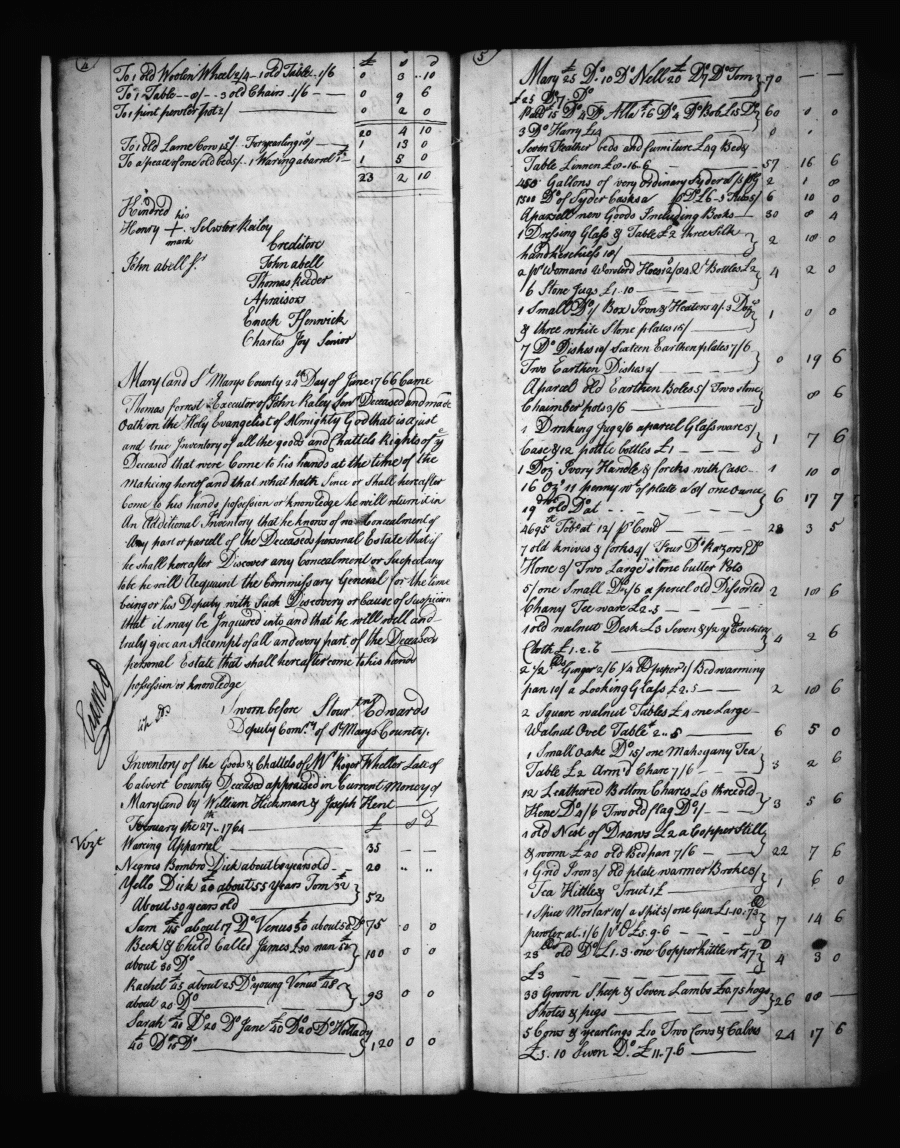 4
£ s d
To 1 old Woolen Wheel 2/4 - 1 old Table 1/6 0 3 10
To 1 Table - 8/ - 3 old Chairs 1/6 0 9 6
To 1 pint pewter pot 2/ 0 2 0
20 4 10
To 1 old Lame Cow 15/ yearling 1 13 0
To a peace of one old bed 5/ 1 barrel 1 5 0
23 2 10
Kindred
Henry his + mark Selvster Raley
Creditors
John abell Jr John abell
Thomas Reeder
Apraisors
Enoch Ffenwick
Charles Joy Senior
Maryland St Marys County 24th Day of June 1766 Came
Thomas forrest Executor of John Raley Senr Deceased and made
Oath on the Holy Evangelist of Almighty God that is a just
and true Inventory of all the goods and Chattels Rights of ye
Deceased that were Come to his hands at the time of the
Making hereof and that what hath Since or Shall hereafter
Come to his hands possession or knowledge he will return it in
An Additional Inventory that he knows of no Concealment of
Any part or parcell of the Deceaseds personal Estate that if
he shall hereafter Discover any Concealment or Suspect any
to be he will Acquaint the Commissary General for the time
being or his Deputy with Such Discovery or Cause of Suspicion
that it may be Inquired into and that he will well and
truly give an Accompt of all and every part of the Deceaseds
personal Estate that shall hereafter come to his hands
possession or knowledge
Sworn before Edwards
Deputy Comry of St Marys County.
Inventory of the Goods & Chattels of Mr Roger Wheller Late of
Calvert County Deceased appraised in Current Money of
Maryland by William Hickman & Joseph Hent
February the 27th 1764 £ s d
Vizt
Waring Apparral 35 — —
Negroes Bombro Dick about 60 years old 20 " "
Yello Dick £20 about 55 years Tom £32
About 50 years old } 52
Sam £45 about 17 Do Venus £30 about 50 Do 75 0 0
Beck & Child Called James £50 nan £50
about 30 Do } 100 0 0
Rachel £45 about 25 Do young Venus £48
about 20 Do } 93 0 0
Sarah £40 Do 20 Do Jane £40 Do 20 Do
£40 Do 15 Do } 120 0 0
5
Mary £25 Do 10 Do Nell £20 Do 7 Do Tom
£25 Do 7 Do } 70 — —
£15 Do 4 Do £16 Do 4 Do Bob £15 Do
3 Do Harry £14 } 60 0 0
Seven Feather beds and furniture £49 Beds
Table Linnen £8..16..6 57 16 6
450 Gallons of very ordinary Syder 2 1 8
1500 Do of Syder Casks £6 - 3 Tubs 5/ 6 10 0
A parsell new Goods Including Books 30 08 4
1 Dressing Glass & Table £2 three Silk
handkerchiefs 18/ } 2 18 0
2 pr Womans Worsterd Hose Bottles £2
6 Stone Jugs £1..10 } 4 2 0
1 Small Do / Box Iron & Heaters 4/ 3 Doz
& three white Stone plates 15/ } 1 0 0
7 Do Dishes 10/ Sixteen Earthen plates 7/6
Two Earthen Dishes 2/ } 0 19 6
A parcel old Earthen Boles 5/ Two stone
Chaimber pots 3/6 } 8 6
1 Drinking Jug a parcel Glass ware 5/
Case & 12 pottle bottles £1 } 1 7 6
1 Doz Ivory Handle & forcks with Case 1 10 0
16 Oz 11 penny wt of plate one ounce
19 old Do at } 6 17 7
4695 Tobo at 12/ pr Cent 28 3 5
7 old knives & forks 4/ Four Do Razors
Hone 3/ Two Large stone butter Pots
5/ one Small Do 1/6 a percel old Disorted
Chany Tee ware £2..5 } 2 18 6
1 old walnut Desk £3 Seven & 1/2 yd Country
Cloth £1..2..6 } 4 2 6
2 1/2 lbs Ginger 2/6 1/4 Do peper 1/ Bed warming
pan 10/ a Looking Glass £2..5 2 18 6
2 Square walnut Tables £4 one Large
Walnut Ovel Table £2..5 6 5 0
1 Small Oake Do 15/ one Mahogany Tea
Table £2 Arm'd Chare 7/6 } 3 2 6
12 Leathered Bottom Chares £3 three old
Do 4/6 Two old flag Do 1/ } 3 5 6
1 old Nest of Draws £2 a Copper Still
& worm £20 old Bed pan 7/6 } 22 7 6
1 Grid Iron 3/ old plate warmer Broke 3/
Tea Kittle & Truit 1£ } 1 6 0
1 Spice Mortar 10/ a Spit 5/ one Gun £1..10 73 lb
pewter at 1/6 pr lb £5..9..6 } 7 14 6
23 lb old Do £1..3 one Copper Kittle wt 47 lb
£3 } 4 3 0
30 Grown Sheep & Seven Lambs hogs
Shotes & pigs } 26 08
5 Cows & yearlings £10 Two Cows & Calves
£3..10 Seven Do £11..7..6 24 17 6